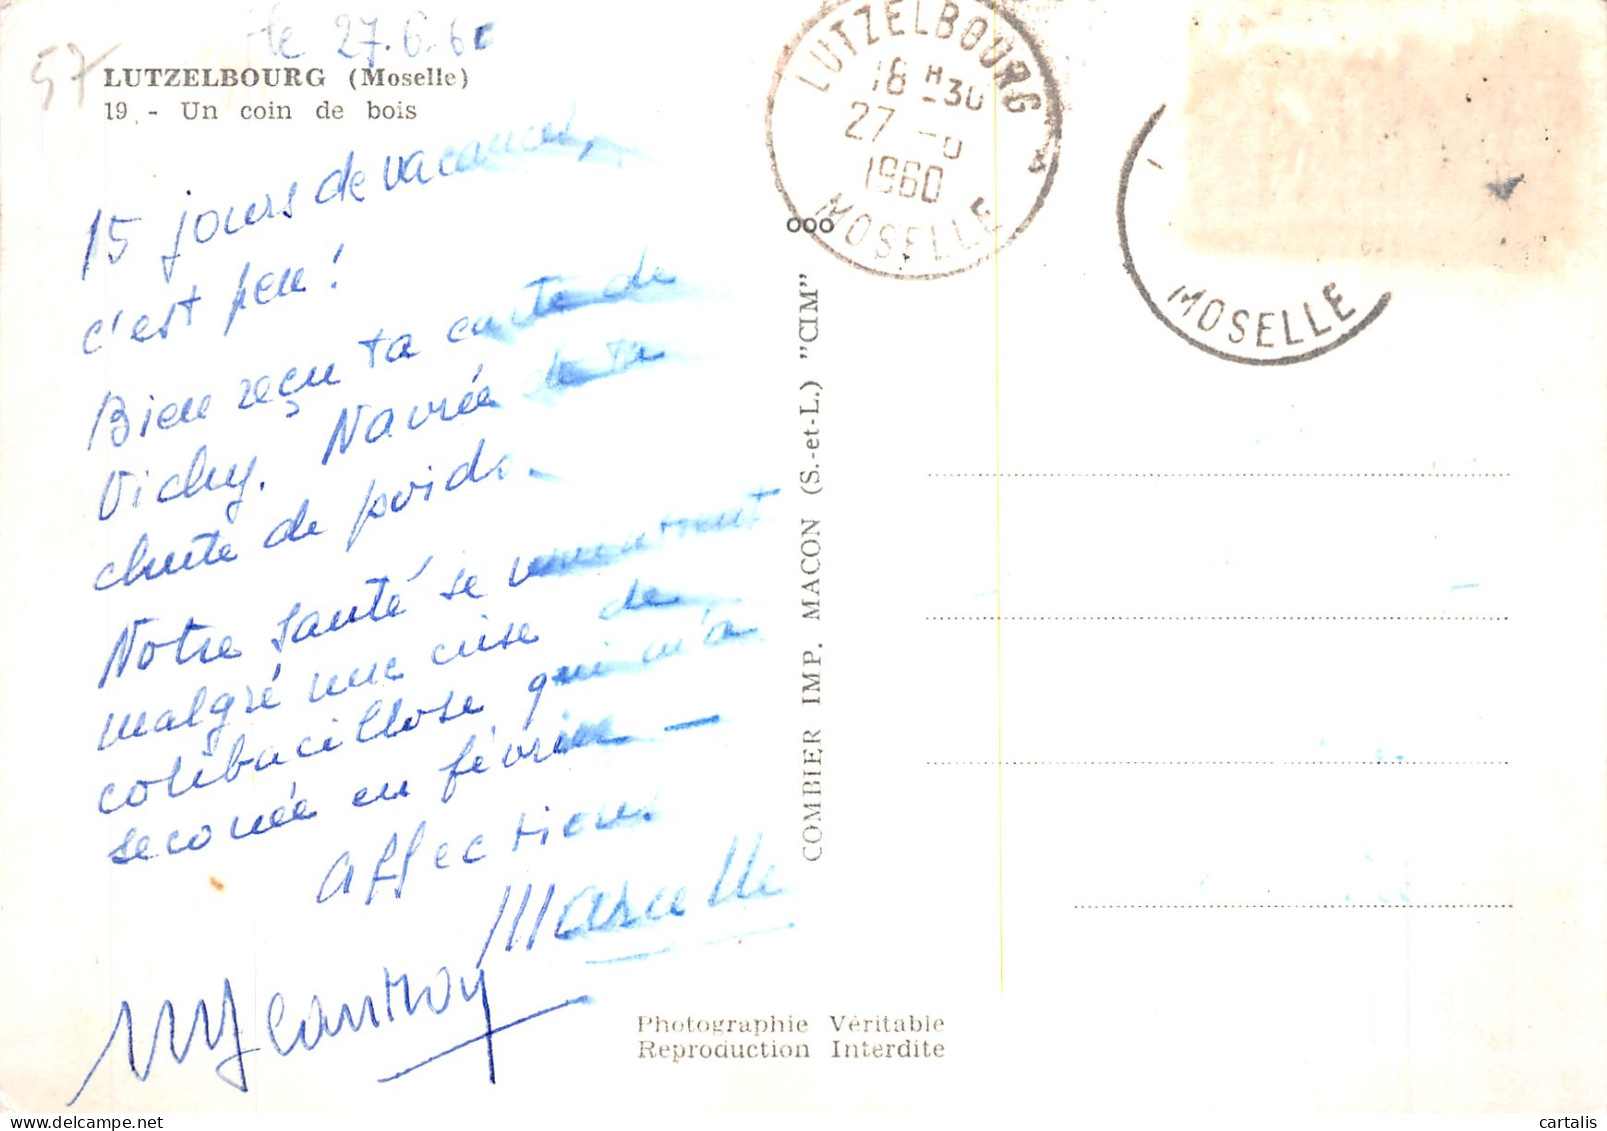 le 27.6.60
57
LUTZELBOURG (Moselle)
19. - Un coin de bois
15 jours de vacances,
c'est peu !
Bien reçu ta carte de
Vichy. Navrée de ta
chute de poids.
Notre santé se maintient
malgré une crise de
colibacillose qui m'a
secouée en février —
Affections
Marcelle
MJeantroy
LUTZELBOURG
18 H 30
27 - 6
1960
MOSELLE
MOSELLE
ooo
COMBIER IMP. MACON (S.-et-L.) "CIM"
Photographie Véritable
Reproduction Interdite
cartalis